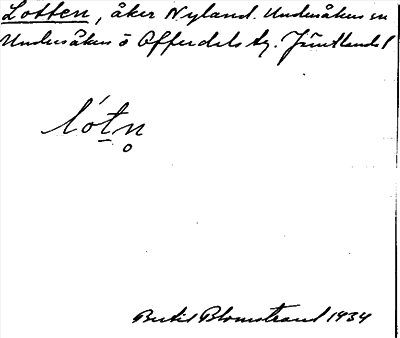 Lotten, åker Nyland. Undersåkers sn
Undersåkers o Offerdals tg. Jämtlands l
lótn̥
Bertil Blomstrand 1934